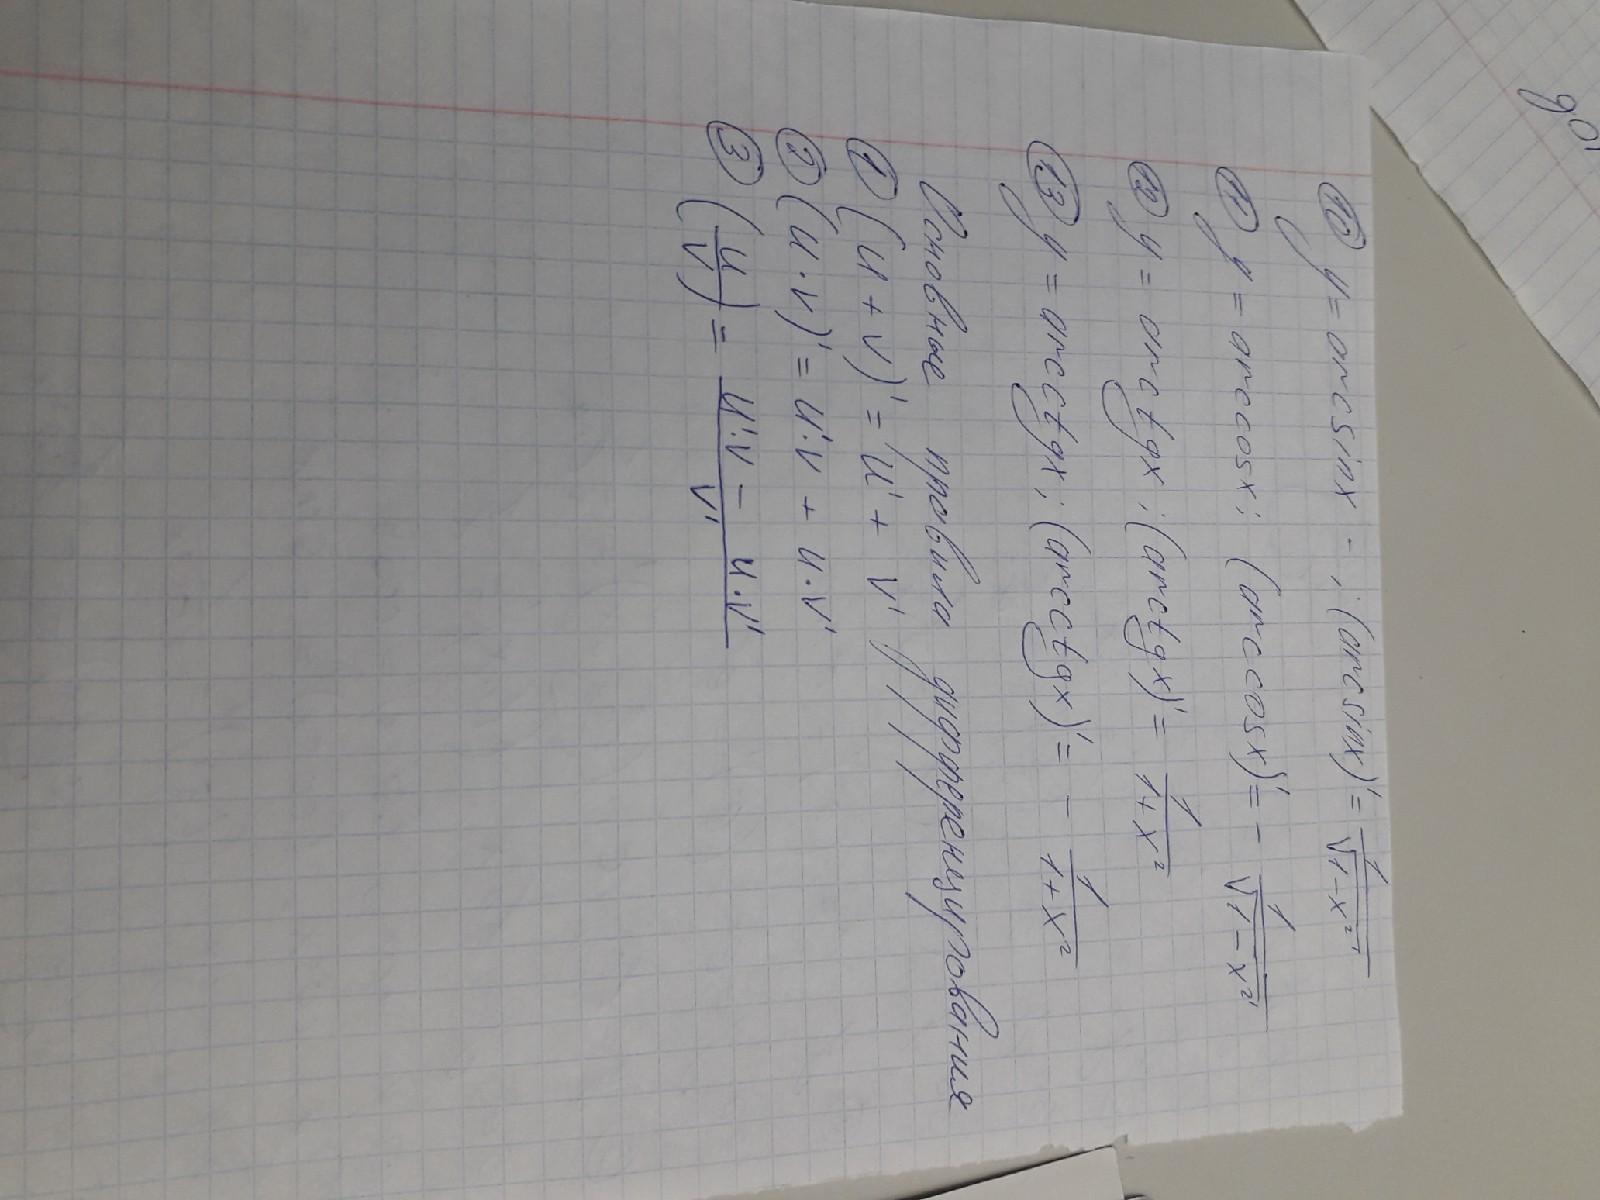 ⑩ y = arcsinx - ; (arcsinx)' = 1/√(1-x²)
⑪ y = arccosx; (arccosx)' = - 1/√(1-x²)
⑫ y = arctgx; (arctgx)' = 1/(1+x²)
⑬ y = arcctgx; (arcctgx)' = - 1/(1+x²)
Основные правила дифференцирования
① (u + v)' = u' + v'
② (u·v)' = u'·v + u·v'
③ (u/v) = (u'·v - u·v')/v'